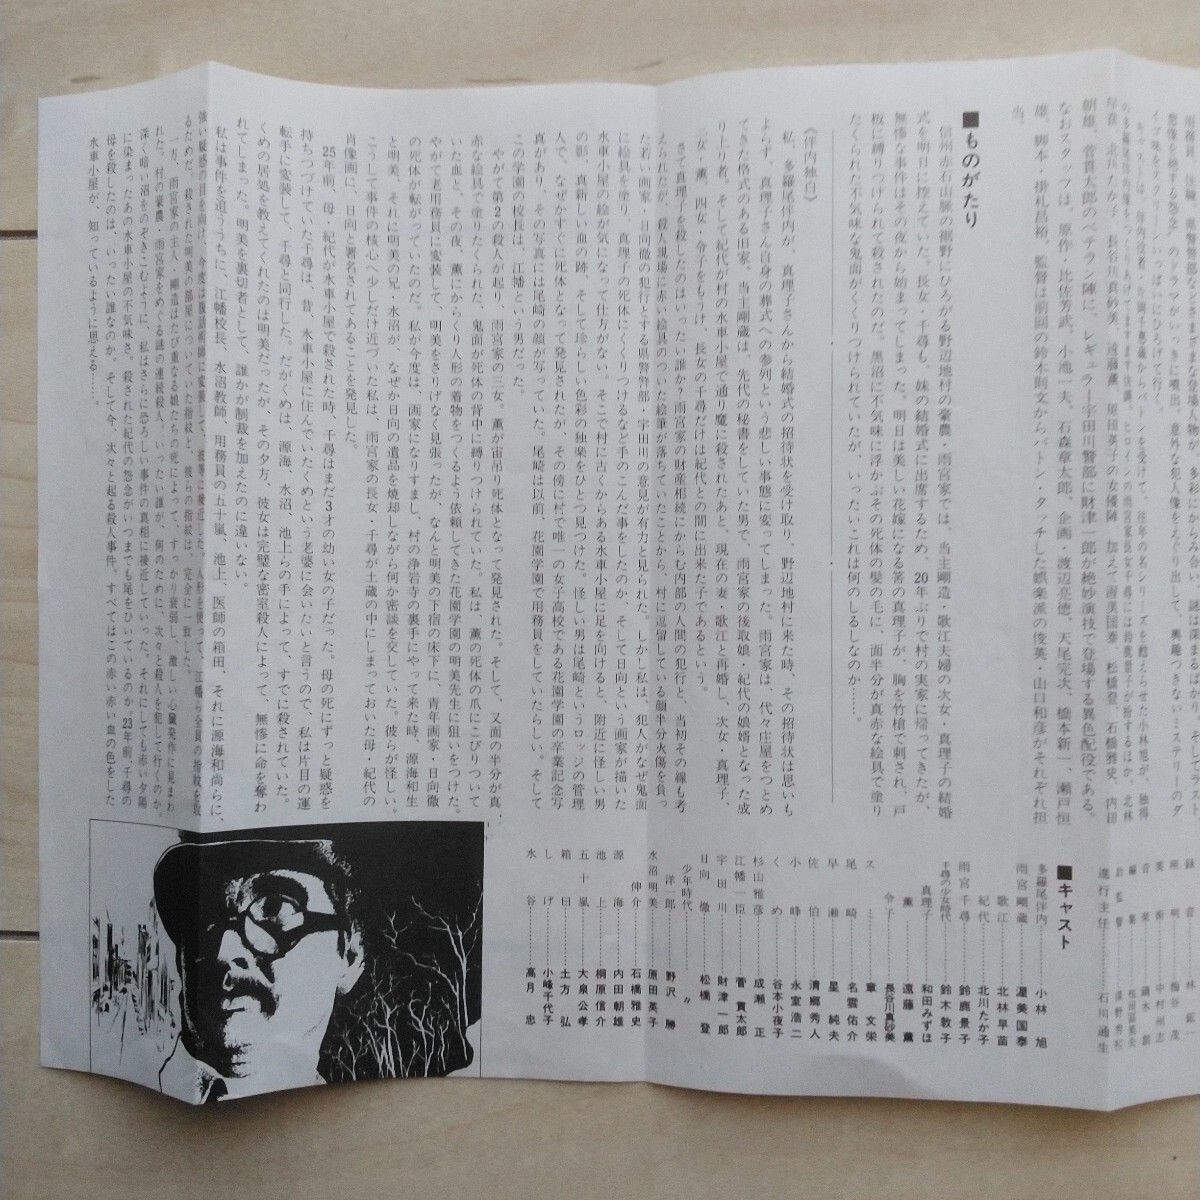 朝雄、菅貫太郎のベテラン陣に、レギュラー宇田川警部に財津一郎が絶妙演技で登場する異色配役である。
なおスタッフは、原作・比佐芳武、小池一夫、石森章太郎、企画・渡辺亮徳、天尾完次、橋本新一、瀬戸恒
雄、脚本・掛札昌裕、監督は前回の鈴木則文からバトン・タッチした娯楽派の俊英・山口和彦がそれぞれ担
当。
■ものがたり
信州赤石山脈の裾野にひろがる野辺地村の豪農・雨宮家では、当主剛造・歌江夫婦の次女・真理子の結婚
式を明日に控えていた。長女・千尋も、妹の結婚式に出席するため、20年ぶりで村の実家に帰ってきたが、
無惨な事件はその夜から始まってしまった。明日は美しい花嫁になる筈の真理子が、胸を竹槍で刺され、戸
板に縛りつけられて殺されたのだ。黒沼に不気味に浮かぶその死体の髪の毛に、面半分が真赤な絵具で塗り
たくられた不気味な鬼面がくくりつけられていたが、いったいこれは何のしるしなのか……。
《伴内独白》
私、多羅尾伴内が、真理子さんから結婚式の招待状を受け取り、野辺地村に来た時、その招待状は思いも
よらず、真理子さん自身の葬式への参列という悲しい事態に変ってしまった。雨宮家は、代々庄屋をつとめ
てきた格式のある旧家。当主剛蔵は、先代の秘書をしていた男で、雨宮家の後取娘・紀代の娘婿となった成
り上り者。そして紀代が村の水車小屋で通り魔に殺されたあと、現在の妻・歌江と再婚し、次女・真理子、
三女・薫、四女・令子をもうけ、長女の千尋だけは紀代との間に出来た子であるという。
さて真理子を殺したのはいったい誰か？雨宮家の財産相続にからむ内部の人間の犯行と、当初その線も考
えられたが、殺人現場に赤い絵具のついた絵筆が落ちていたことから、村に逗留している顔半分火傷を負っ
た若い画家・日向徹の犯行とする県警警部・宇田川の意見が有力と見られた。しかし私は、犯人がなぜ鬼面
に絵具を塗り、真理子の死体にくくりつけるなど手のこんだ事をしたのか、そして日向という画家が描いた
水車小屋の絵が気になって仕方がない。そこで村に古くからある水車小屋に足を向けると、附近に怪しい男
の影、真新しい血の跡、そして珍らしい色彩の独楽をひとつ見つけた。怪しい男は尾崎というロッジの管理
人で、なぜかすぐに死体となって発見されたが、その傍に村で唯一の女子高校である花園学園の卒業記念写
真があり、その写真には尾崎の顔が写っていた。尾崎は以前、花園学園で用務員をしていたらしい。そして
この学園の校長は、江幡という男だった。
やがて第2の殺人が起り、雨宮家の三女、薫が宙吊り死体となって発見された。そして、又面の半分が真
赤な絵具で塗りたくられた、鬼面が死体の背中に縛りつけられていた。私は、薫の死体の爪にこびりついて
いた血と、その夜、薫にからくり人形の着物をつくるよう依頼してきた花園学園の明美先生に狙いをつけた。
やがて老用務員に変装して、明美をさりげなく見張ったが、なんと明美の下宿の床下に、青年画家・日向徹
の死体が転っていたのだ。私が今度は、画家になりすまし、村の浄岩寺の裏手にやって来た時、源海和尚
と明美、それに明美の兄・水沼が、なぜか日向の遺品を焼却しながら何か密談を交していた。彼らが怪しい。
こうして事件の核心へ少しだけ近づいた私は、雨宮家の長女・千尋が土蔵の中にしまっておいた母・紀代の
肖像画に、日向と署名されてあることを発見した。
25年前、母・紀代が水車小屋で殺された時、千尋はまだ3才の幼い女の子だった。母の死にずっと疑惑を
持ちつづけていた千尋は、昔、水車小屋に住んでいたくめという老婆に会いたいと言うので、私は片目の運
転手に変装して、千尋と同行した。だがくめは、源海、水沼、池上らの手によって、すでに殺されていた。
くめの居処を教えてくれたのは明美だったが、その夕方、彼女は完璧な密室殺人によって、無惨に命を奪わ
れてしまった。明美を裏切者として、誰かが制裁を加えたのに違いない。
私は事件を追ううちに、江幡校長、水沼教師、用務員の五十嵐、池上、医師の箱田、それに源海和尚らに、
強い疑惑の目を向け、今度は腹話術師に変装して、彼等に接近した。人形を使って、江幡ら全員の指紋を取
るためだ。殺された明美の部屋についていた指紋と、彼らの指紋は、完全に一致した。
一方、雨宮家の主人・剛造はたび重なる娘たちの死によって、すっかり衰弱し、激しい心臓発作に見まわ
れた。村の豪農・雨宮家をめぐる謎の連続殺人。いったい誰が、何のために、次々と殺人を犯して行くのか。
深く暗い沼をのぞきこむように、私はさらに恐ろしい事件の真相に接近していった。それにしても赤い夕陽
に染まったあの水車小屋の不気味さ。殺された紀代の怨念がいつまでも尾をひいているのか。23年前、千尋の
母を殺したのは、いったい誰なのか。そして今、次々と起る殺人事件。すべてはこの赤い赤い血の色をした
水車小屋が、知っているように思える……。
■キャスト
多羅尾伴内……小林　旭
雨宮剛蔵……渥美国泰
歌江……北林早苗
紀代……北川たか子
雨宮千尋……鈴鹿景子
千尋の少女時代……鈴木敦子
真理子……和田みずほ
薫……遠藤　薫
令子……長谷川真砂美
スミ……章　文栄
尾崎……名雲佑介
早瀬……星　純夫
佐伯……清郷秀人
小峰……永室浩二
くめ……谷本小夜子
杉山雅彦……成瀬　正
江幡一臣……菅　貫太郎
宇田川……財津一郎
日向　徹……松橋　登
少年時代……〃
洋一郎……野沢　勝
水沼明美……原田英子
伸介……石橋雅史
源海……内田朝雄
池上……桐原信介
五十嵐……大泉公孝
箱田……土方　弘
しげ……小峰千代子
水谷……高月　忠
進行主任……石川通生